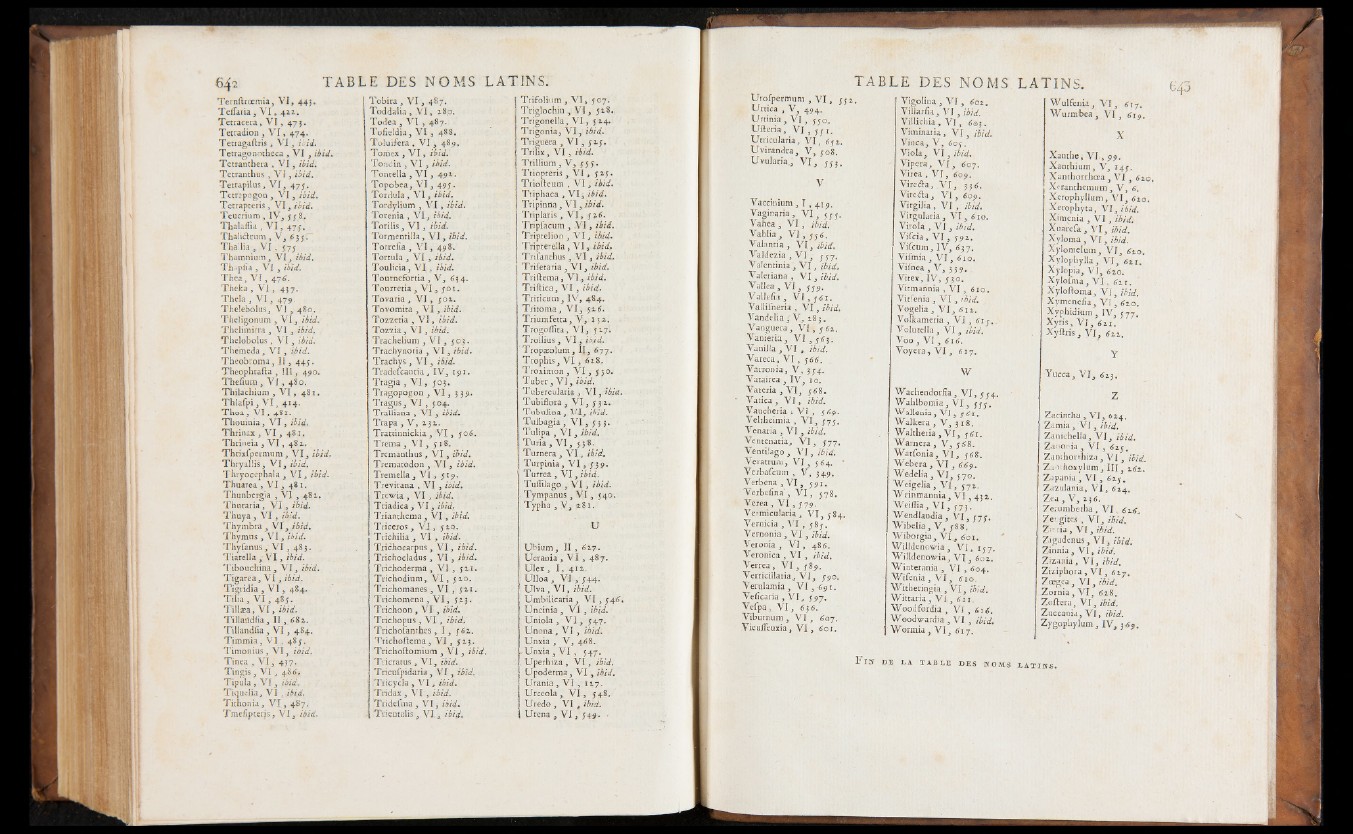 642 TABLE DES NOMS LATINS.
Ternſtrœmia, VI, 443.
Teſſaria, VI, 422.
Tetracera, VI, 473.
Tetradion, VI, 474.
Tetragaſtris, VI, ibid.
Tetragonotheca, VI, ibid.
Tetranthera, VI, ibid.
Tetranthus, VI, ibid.
Tetrapilus, VI, 475.
Tetrapogon, VI, ibid.
Tetrapteris, VI, ibid.
Teucrium, IV, 558.
Thalaſſia, VI, 475.
Thalictrum, V, 635.
Thalia, VI, 575.
Thamnium, VI, ibid.
Thapſia, VI, ibid.
Thea, VI, 476.
Theka, VI, 437.
Thela, VI, 479
Thelebolus, VI, 480.
Theligonum, VI, ibid.
Thelimitra, VI, ibid.
Thelobolus, VI, ibid.
Themeda, VI, ibid.
Theobroma, II, 445.
Theophraſta, III, 490.
Theſium, VI, 480.
Thilachium, VI, 481.
Thlaſpi, VI, 414.
Thoa, VI, 482.
Thouinia, VI, ibid.
Thrinax, VI, 481.
Thrincia, VI, 482.
Thrixſpermum, VI, ibid.
Thryallis, VI, ibid.
Thryocephala, VI, ibid.
Thuarea, VI, 481.
Thunbergia, VI, 482.
Thuraria, VI, ibid.
Thuya, VI, ibid.
Thymbra, VI, ibid.
Thymus, VI, ibid.
Thyſanus, VI, 483.
Tiarella, VI, ibid.
Tibouchina, VI, ibid.
Tigarea, VI, ibid.
Tigridia, VI, 484.
Tilia, VI, 485.
Tillæa, VI, ibid.
Tillandſia, II, 682.
Tillandſia, VI, 484.
Timmia, VI, 485.
Timonius, VI, ibid.
Tinea, VI, 437.
Tingis, VI, 486.
Tipula, VI, ibid.
Tiquelia, VI, ibid.
Tithonia, VI, 487.
Tmeſipteris, VI, ibid.
Tobira, VI, 487.
Toddalia, VI, 280.
Todea, VI, 487.
Tofieldia, VI, 488.
Toluifera, VI, 489.
Tomex, VI, ibid.
Tonclin, VI, ibid.
Tontella, VI, 492.
Topobea, VI, 495.
Tordula, VI, ibid.
Tordylium, VI, ibid.
Torenia, VI, ibid.
Torilis, VI, ibid.
Tormentilla, VI, ibid.
Torreſia, VI, 498.
Tortula, VI, ibid.
Toulicia, VI, ibid.
Tournefortia, V, 634.
Tourretia, VI, 501.
Tovaria, VI, 502.
Tovomita, VI, ibid.
Tozzettia, VI, ibid.
Tozzia, VI, ibid.
Trachelium, VI, 503.
Trachynotia, VI, ibid.
Trachys, VI, ibid.
Tradeſcantia, IV, 191.
Tragia, VI, 503.
Tragopogon, VI, 339.
Tragus, VI, 504.
Tralliana, VI, ibid.
Trapa, V, 232.
Trattinnickia, VI, 506.
Trema, VI, 518.
Tremanthus, VI, ibid.
Trematodon, VI, ibid.
Tremella, VI, 519.
Trevirana, VI, ibid.
Trewia, VI, ibid.
Triadica, VI, ibid.
Trianthema, VI, ibid.
Triceros, VI, 520.
Trichilia, VI, ibid.
Trichocarpus, VI, ibid.
Trichocladus, VI, ibid.
Trichoderma, VI, 521.
Trichodium, VI, 520.
Trichomanes, VI, 521.
Trichomena, VI, 523.
Trichoon, VI, ibid.
Trichopus, VI, ibid.
Trichoſanthes, I, 562.
Trichoſtema, VI, 523.
Trichoſtomium, VI, ibid.
Tricratus, VI, ibid.
Tricuſpidaria, VI, ibid.
Tricycla, VI, ibid.
Tridax, VI, ibid.
Trideſina, VI, ibid.
Trientalis, VI, ibid.
Trifolium, VI, 507.
Triglochin, VI, 528.
Trigonella, VI, 524.
Trigonia, VI, ibid.
Triguera, VI, 525.
Trilix, VI, ibid.
Trillium, V, 555.
Triopteris, VI, 525.
Trioſteum, VI, ibid.
Triphaca, VI, ibid.
Tripinna, VI, ibid.
Triplaris, VI, 526.
Tripſacum, VI, ibid.
Triptelion, VI, ibid.
Tripterella, VI, ibid.
Triſanthus, VI, ibid.
Triſetaria, VI, ibid.
Triſtema, VI, ibid.
Triſtica, VI, ibid.
Triticum, IV, 484.
Tritoma, VI, 526.
Triumfetta, V, 232.
Trogoſſita, VI, 527.
Trollius, VI, ibid.
Tropæolum, II, 677.
Trophis, VI, 628.
Troximon, VI, 530.
Tuber, VI, ibid.
Tubercularia, VI, ibid.
Tubiflora, VI, 532.
Tubulina, VI, ibid.
Tulbagia, VI, 533.
Tulipa, VI, ibid.
Turia, VI, 538.
Turnera, VI, ibid.
Turpinia, VI, 539.
Turrea, VI, ibid.
Tuſſilago, VI, ibid.
Tympanus, VI, 540.
Typha, V, 281.
U
Ubium, II, 627.
Ucrania, VI, 487.
Ulex, I, 412.
Ulloa, VI, 544.
Ulva, VI, ibid.
Umbilicaria, VI, 546.
Uncinia, VI, ibid.
Uniola, VI, 547.
Unona, VI, ibid.
Unxia, V, 468.
Unxia, VI, 547.
Uperhiza, VI, ibid.
Upoderma, VI, ibid.
Urania, VI, 127.
Urceola, VI, 548.
Uredo, VI, ibid.
Urena, VI, 549.
TABLE DES NOMS LATINS. 643
Uroſpermum, VI, 552.
Urtica, V, 494.
Urtinia, VI, 550.
Uſteria, VI, 551.
Utricularia, VI, 652.
Uvirandra, V, 508.
Uvularia, VI, 553.
V
Vaccinium, I, 419.
Vaginaria, VI, 555.
Vahea, VI, ibid.
Vahlia, VI, 556.
Valantia, VI, ibid.
Valdezia, VI, 557.
Valentinia, VI, ibid.
Valeriana, VI, ibid.
Vallea, VI, 559.
Valleſia, VI, 561.
Valliſneria, VI, ibid.
Vandelia, V, 283.
Vangueta, VI, 562.
Vanieria, VI, 563.
Vanilla, VI, ibid.
Vareca, VI, 566.
Varronia, V, 354.
Vatairea, IV, 10.
Vateria, VI, 568.
Vatica, VI, ibid.
Vaucheria, VI, 569.
Veltheimia, VI, 575.
Venaria, VI, ibid.
Ventenatia, VI, 577.
Ventilago, VI, ibid.
Veratrum, VI, 564.
Verbaſcum, V, 349.
Verbena, VI, 591.
Verbeſina, VI, 578.
Verea, VI, 579.
Vermicularia, VI, 584.
Vernicia, VI, 585.
Vernonia, VI, ibid.
Veronia, VI, 486.
Veronica, VI, ibid.
Verrea, VI, 589.
Verticillaria, VI, 590.
Verulamia, VI, 691.
Veſicaria, VI, 597.
Veſpa, VI, 636.
Viburnum, VI, 607.
Vicuſſeuxia, VI, 601.
Vigolina, VI, 602.
Villarſia, VI, ibid.
Villichia, VI, 603.
Viminaria, VI, ibid.
Vinca, V, 605.
Viola, VI, ibid.
Vipera, VI, 607.
Virea, VI, 609.
Virecta, VI, 336.
Virecta, VI, 609.
Virgilia, VI, ibid.
Virgularia, VI, 610.
Virola, VI, ibid.
Viſcia, VI, 592.
Viſcum, IV, 637.
Viſmia, VI, 610.
Viſnea, V, 539.
Vitex, IV, 530.
Vitmannia, VI, 610.
Vittenia, VI, ibid.
Vogelia, VI, 611.
Volkameria, VI, 615.
Volutella, VI, ibid.
Voo, VI, 616.
Voyera, VI, 627.
W
Wachendorfia, VI, 554.
Wahlbomia, VI, 555.
Wallenia, VI, 562.
Walkera, V, 318.
Waltheria, VI, 561.
Warnera, V, 568.
Watſonia, VI, 568.
Webera, VI, 669.
Wedelia, VI, 570.
Weigelia, VI, 572.
Weinmannia, VI, 432.
Weiſſia, VI, 573.
Wendlandia, VI, 575.
Wibelia, V, 588.
Wiborgia, VI, 601.
Willdenowia, VI, 157.
Willdenowia, VI, 602.
Winterania, VI, 604.
Wiſenia, VI, 610.
Witheringia, VI, ibid.
Wittaria, VI, 611.
Woodfordia, VI, 616.
Woodwardia, VI, ibid.
Wormia, VI, 617.
Wulfenia, VI, 617.
Wurmbea, VI, 619.
X
Xanthe, VI, 99.
Xanthium, V, 145.
Xanthorrhœa, VI, 620.
Xeranthemum, V, 6.
Xerophyllum, VI, 620.
Xerophyta, VI, ibid.
Ximenia, VI, ibid.
Xuareſa, VI, ibid.
Xyloma, VI, ibid.
Xylomelum, VI, 620.
Xylophylla, VI, 621.
Xylopia, VI, 620.
Xyloſma, VI, 621.
Xyloſtoma, VI, ibid.
Xymenefia, VI, 620.
Xyphidium, IV, 577.
Xyris, VI, 621.
Xyſtris, VI, 622.
Y
Yucca, VI, 623.
Z
Zacintha, VI, 624.
Zamia, VI, ibid.
Zanichella, VI, ibid.
Zanonia, VI, 625.
Zanthorrhiza, VI, ibid.
Zanthoxylum, III, 262.
Zapania, VI, 625.
Zazulania, VI, 624.
Zea, V, 236.
Zerumberha, VI, 626.
Zeugites, VI, ibid.
VI, ibid.
Zigadenus, VI, ibid.
Zinnia, VI, ibid.
Zizania, VI, ibid.
Ziziphora, VI, 627.
Zœgea, VI, ibid.
Zornia, VI, 628.
Zoſtera, VI, ibid.
Zuccania, VI, ibid.
Zygophylum, IV, 369.
FIN DE LA TABLE DES NOMS LATINS.